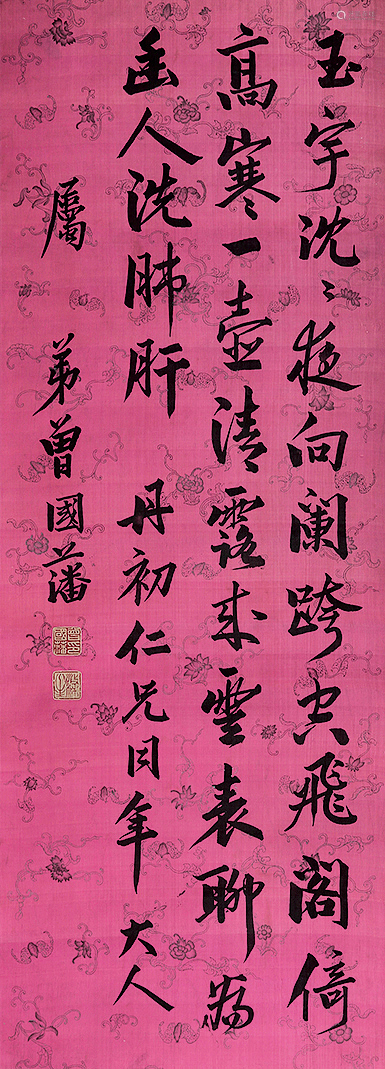 玉宇沈沈夜向阑跨空飛阁倚
高寒一壺清露来雲表聊為
幽人洗肺肝 丹初仁兄同年大人
屬 弟曾國藩